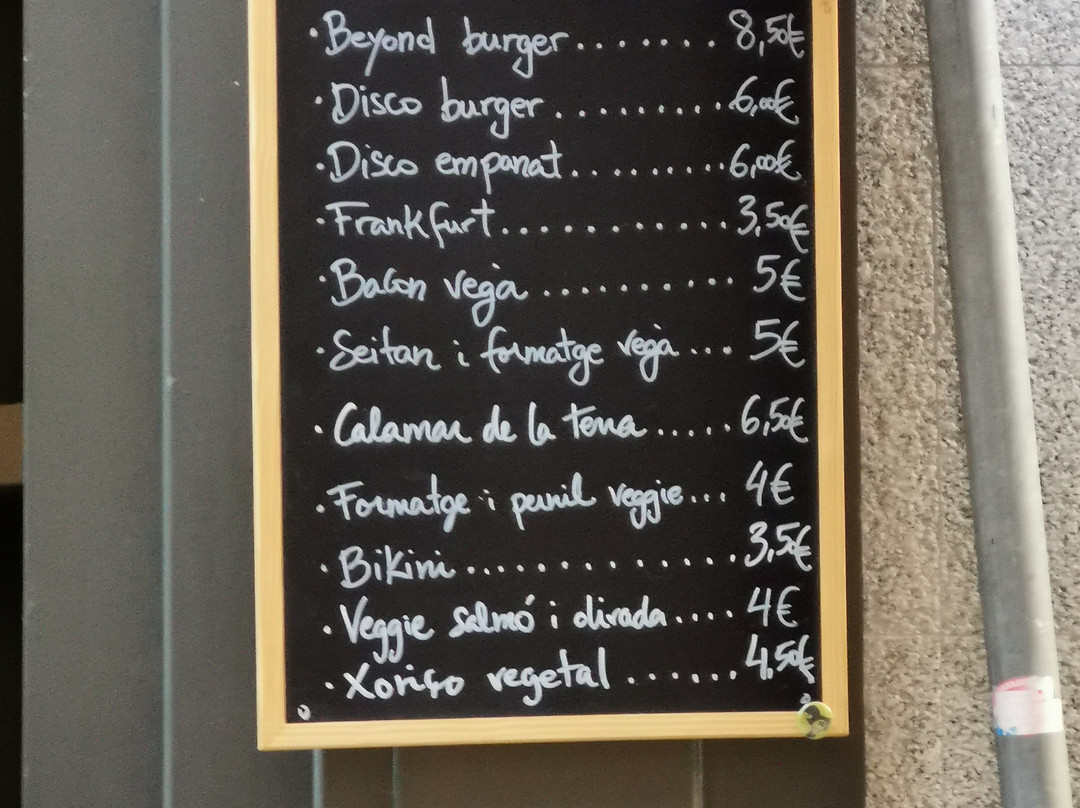 · Beyond burger....... 8,50€
· Disco burger......... 6,00€
· Disco empanat........ 6,00€
· Frankfurt............ 3,50€
· Bacon vegà.......... 5€
· Seitan i formatge vegà... 5€
· Calamar de la terra..... 6,50€
· Formatge i pernil veggie... 4€
· Bikini............. 3,50€
· Veggie salmó i olivada.... 4€
· Xoriço vegetal...... 4,50€